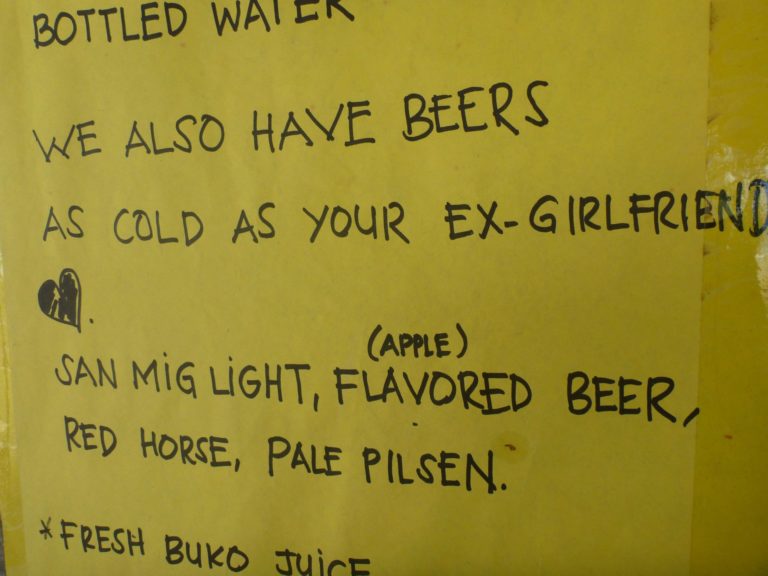 BOTTLED WATER
WE ALSO HAVE BEERS
AS COLD AS YOUR EX-GIRLFRIEND
.
(APPLE)
SAN MIG LIGHT, FLAVORED BEER,
RED HORSE, PALE PILSEN.
*FRESH BUKO JUICE